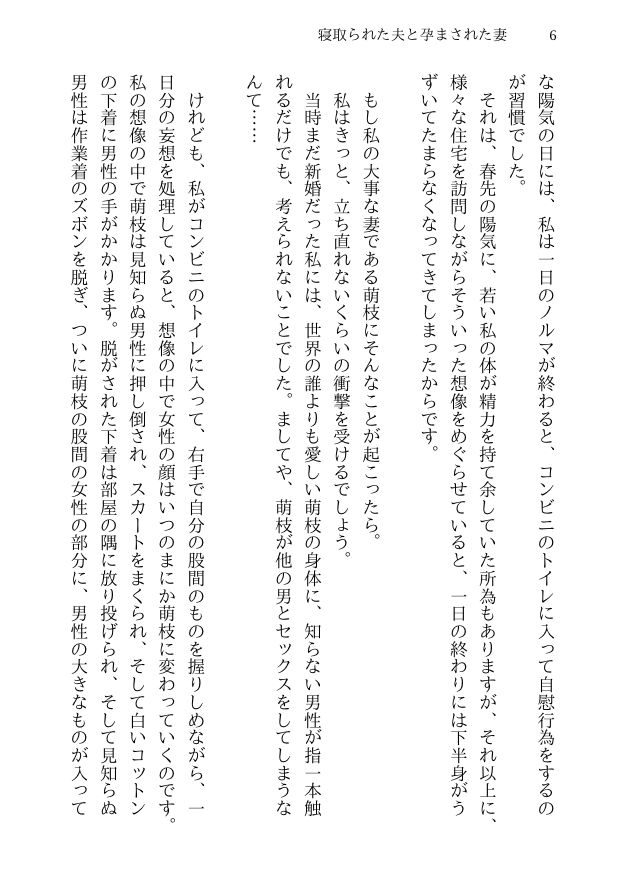 寝取られた夫と孕まされた妻
6
な陽気の日には、私は一日のノルマが終わると、コンビニのトイレに入って自慰行為をするの
が習慣でした。
それは、春先の陽気に、若い私の体が精力を持て余していた所為もありますが、それ以上に、
様々な住宅を訪問しながらそういった想像をめぐらせていると、一日の終わりには下半身がう
ずいてたまらなくなってきてしまったからです。
もし私の大事な妻である萌枝にそんなことが起こったら。
私はきっと、立ち直れないくらいの衝撃を受けるでしょう。
当時まだ新婚だった私には、世界の誰よりも愛しい萌枝の身体に、知らない男性が指一本触
れるだけでも、考えられないことでした。ましてや、萌枝が他の男とセックスをしてしまうな
んて……
けれども、私がコンビニのトイレに入って、右手で自分の股間のものを握りしめながら、一
日分の妄想を処理していると、想像の中で女性の顔はいつのまにか萌枝に変わっていくのです。
私の想像の中で萌枝は見知らぬ男性に押し倒され、スカートをまくられ、そして白いコットン
の下着に男性の手がかかります。脱がされた下着は部屋の隅に放り投げられ、そして見知らぬ
男性は作業着のズボンを脱ぎ、ついに萌枝の股間の女性の部分に、男性の大きなものが入って